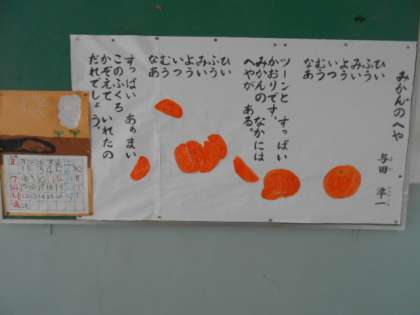 みかんのへや
与田 凖一
ひい
ふう
みい
よう
いつ
むう
なあ
ツーンと すっぱい
かおりです、
みかんの なかには
へやが ある。
ひい
ふう
みい
よう
いつ
むう
なあ
すっぱい あぁまい
このふくろ
かぞえて いれたの
だれでしょう。